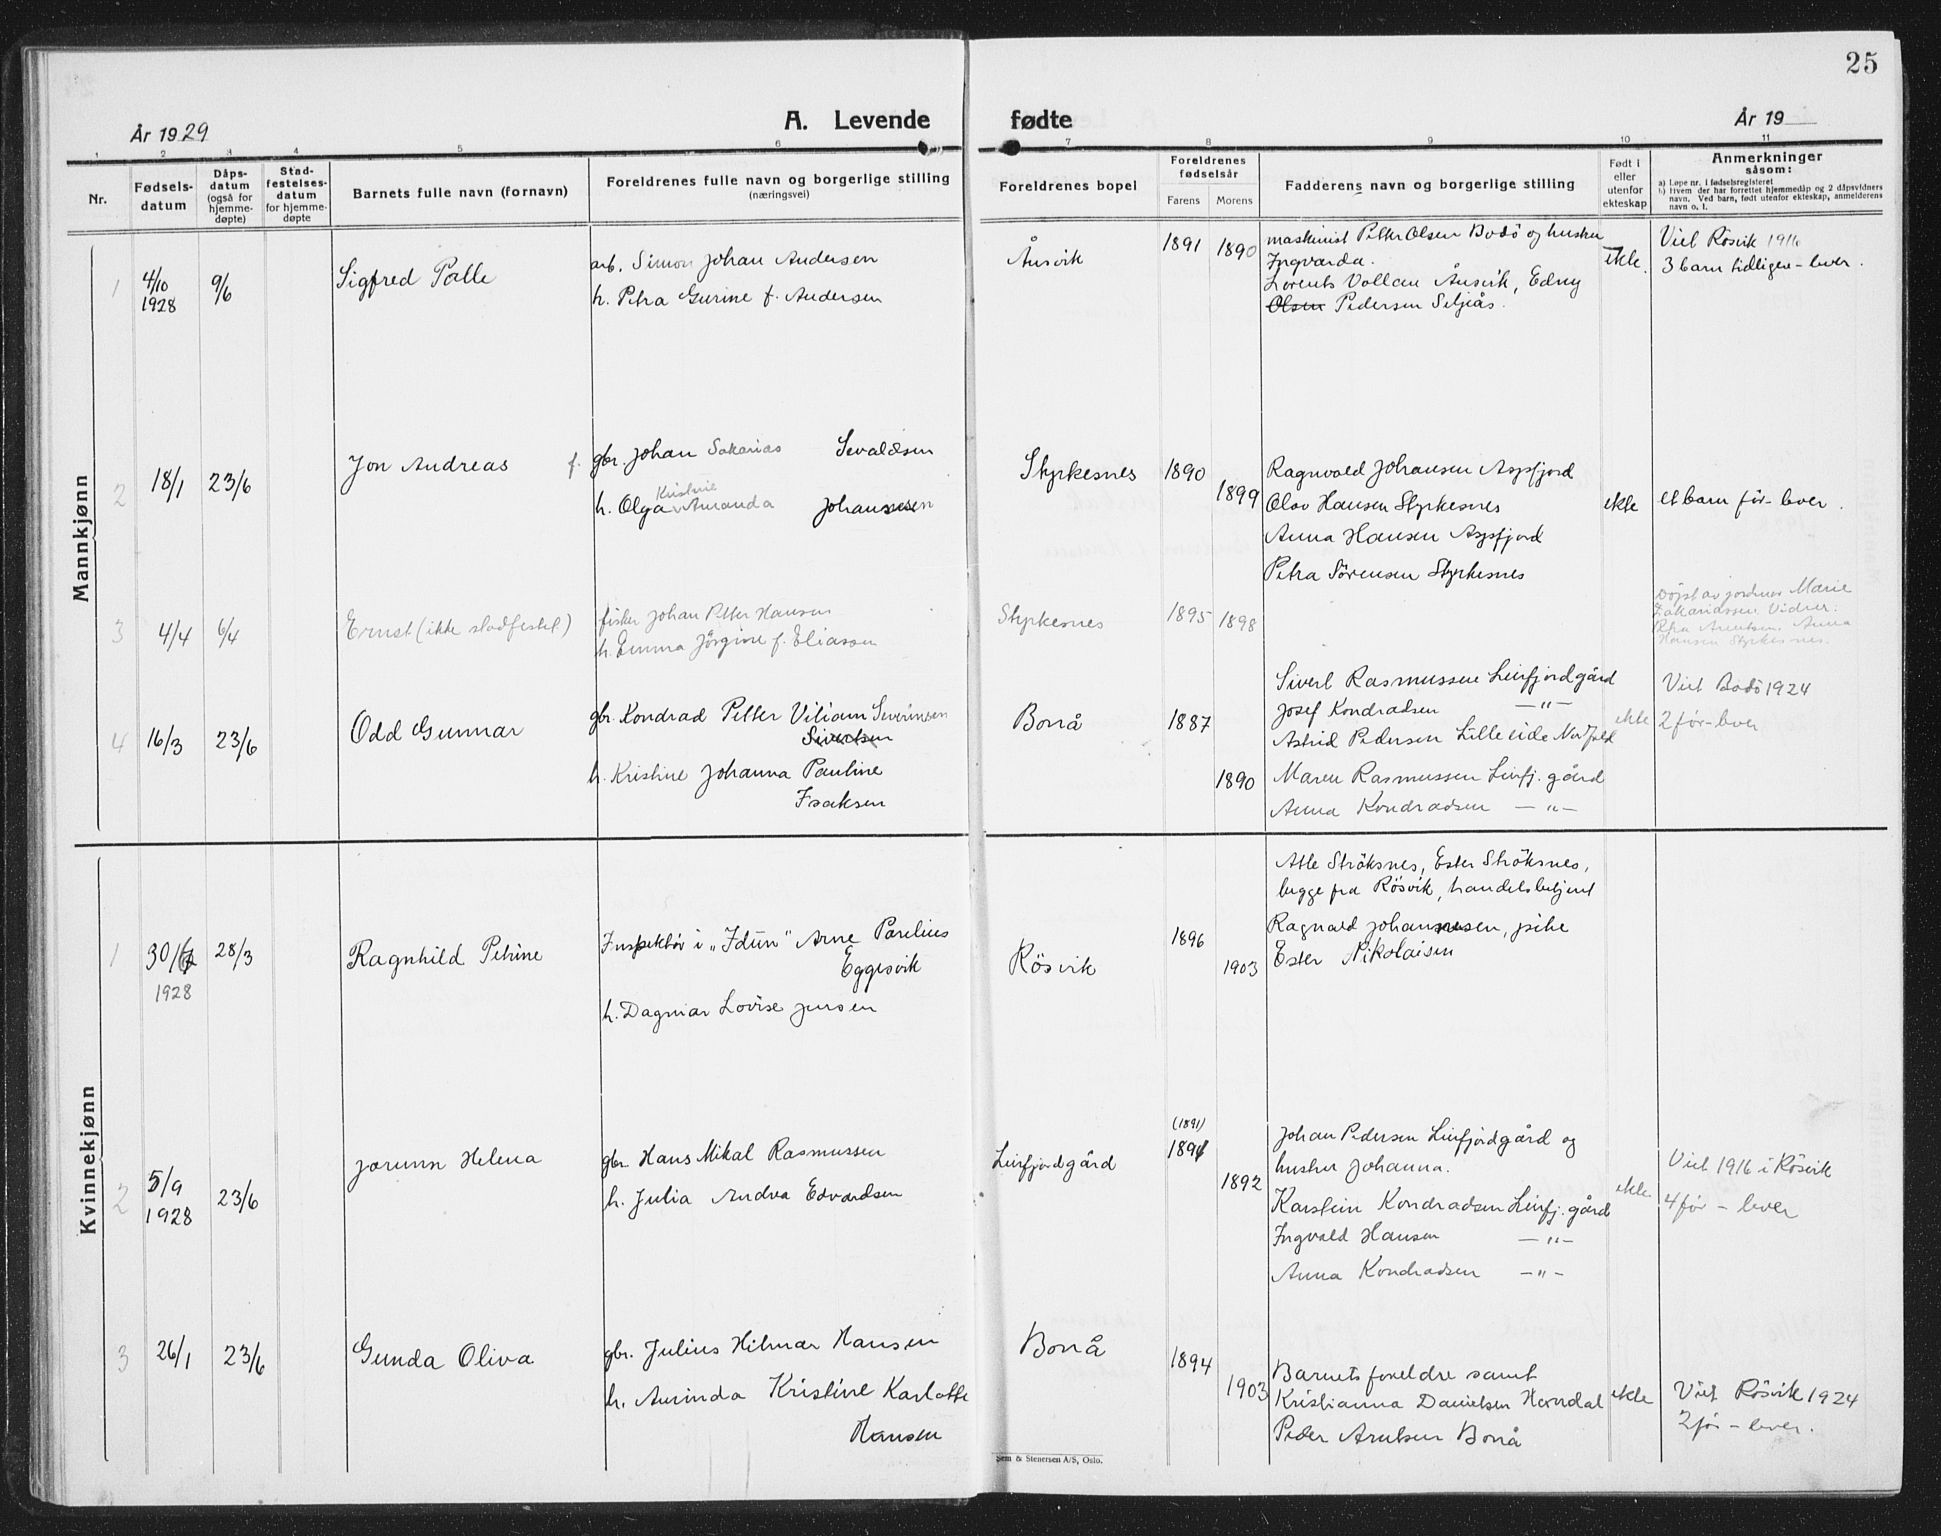 25
År 1929
A. Levende fødte
År 19
1 2 3 4 5 6 7 8 9 10 11
Nr.
Fødsels-datum
Dåps-datum (også for hjemme-døpte)
Stad-festelses-datum for hjemme-døpte
Barnets fulle navn (fornavn)
Foreldrenes fulle navn og borgerlige stilling
(næringsvei)
Foreldrenes bopel
Foreldrenes fødselsår
Farens Morens
Fadderens navn og borgerlige stilling
Født i eller utenfor ekteskap
Anmerkninger såsom:
a) Løpe nr. i fødselsregisteret
b) Hvem der har forrettet hjemmedåp og 2 dåpsvidners
navn. Ved barn, født utenfor ekteskap, anmelderens
navn o. l.
Mannkjønn
1 4/10 1928 9/6 Sigfred Palle
arb. Simon Johan Andersen
h. Petra Gurine f. Andersen
Ånsvik 1891 1890
maskinist Petter Olsen Bodö og hustru
Ingvarda.
Lorents Vollan Ånsvik, Edny
Olsen Pedersen Seljeås.
ekte.
Viet Rösvik 1916
3 barn tidligere - lever.
2 18/1 23/6 Jon Andreas f.
gbr. Johan Sakarias Sevaldsen
Kristine
h. Olga Amanda Johannesen
Styrkesnes 1890 1899
Ragnvald Johansen Aspfjord
Olav Hansen Styrkesnes
Anna Hansen Aspfjord
Petra Sörensen Styrkesnes
ekte
et barn før - lever.
3 4/4 6/4 Ernst (ikke stadfestet)
fisker Johan Petter Hansen
h. Emma Jörgine f. Eliassen
Styrkesnes 1895 1898
Döpt av jordmor Marie
Zakariassen. Vidner:
Petra Arentsen, Anna
Hansen Styrkesnes.
4 16/3 23/6 Odd Gunnar
gbr. Kondrad Petter Viliam Severinsen
Sivertsen
h. Kristine Johanna Pauline
Isaksen
Bonå 1887 1890
Sivert Rasmussen Leirfjordgård
Josef Kondradsen — " —
Astrid Pedersen Lilleeide
Maren Rasmussen Leirfj. gård
Anna Kondradsen — " —
ekte
Viet Bodö 1924
2 før - lever
Kvinnekjønn
1 30/ 1928 28/3 Ragnhild Petrine
Inspektör i „Idun" Arne Parelius
Eggesvik
h. Dagmar Lovise Jensen
Rösvik 1896 1903
Atle Ströksnes, Ester Ströksnes,
begge fra Rösvik, handelsbetjent
Ragnvald Johannesen, pike
Ester Nikolaisen
2 5/9 1928 23/6 Jorunn Helena
gbr. Hans Mikal Rasmussen
h. Julia Andva Edvardsen
Leirfjordgård (1891) 1891 1892
Johan Pedersen Leirfjordgård og
hustru Johanna.
Karstein Kondradsen Leirfj. gård
Ingvald Hansen — " —
Anna Kondradsen — " —
ekte
Viet 1916 i Rösvik
4 før - lever
3 26/1 23/6 Gunda Oliva
gbr. Julius Hilmar Hansen
h. Aminda Kristine Karlotte
Hansen
Bonå 1894 1903
Barnets foreldre samt
Kristianna Danielsen Horndal
Peder Arntsen Bonå
ekte
Viet Rösvik 1924
2 før - lever.
Sem & Stenersen A/S, Oslo.